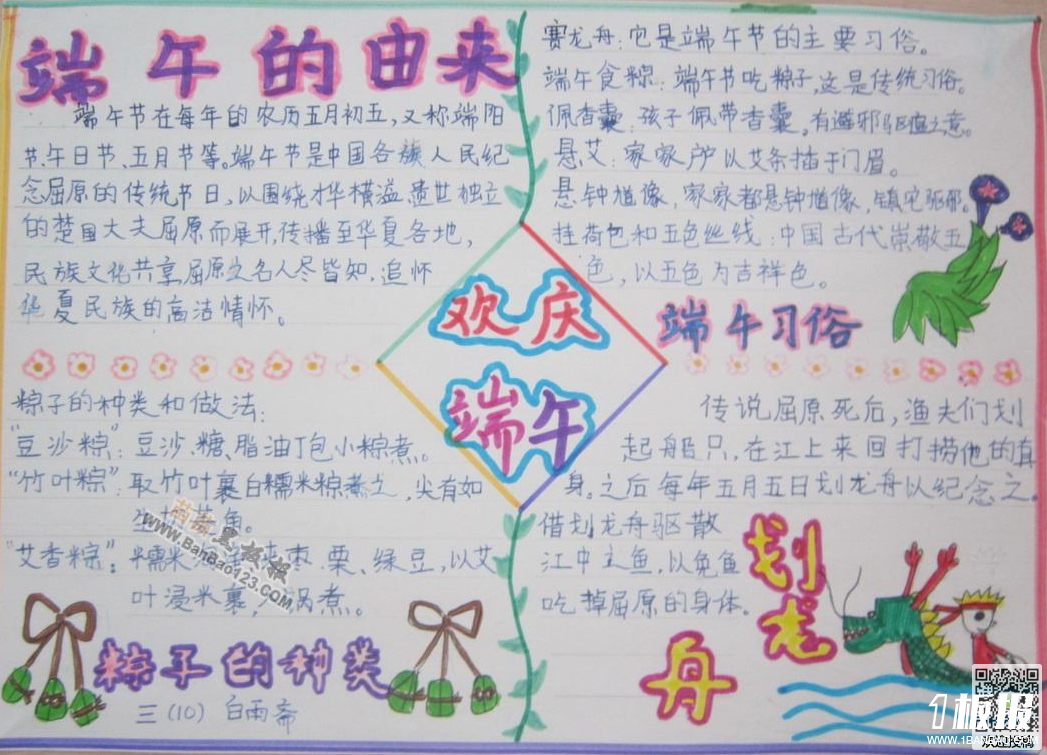 端午的由来
端午节在每年的农历五月初五,又称端阳
节、午日节、五月节等。端午节是中国各族人民纪
念屈原的传统节日,以围绕才华横溢、遗世独立
的楚国大夫屈原而展开,传播至华夏各地,
民族文化共享,屈原之名人尽皆知.追怀
华夏民族的高洁情怀。
粽子的种类和做法:
"豆沙粽":豆沙、糖、脂油丁包小粽煮。
"竹叶粽":取竹叶裹白糯米粽煮之,尖有如
菱角。
"艾香粽":糯米 夹枣、栗、绿豆,以艾
叶浸米裹,入锅煮。
粽子的种类
三(10) 白雨斋
欢庆
端午
赛龙舟:它是端午节的主要习俗。
端午食粽:端午节吃粽子,这是传统习俗。
佩香囊:孩子佩带香囊,有避邪驱瘟之意。
悬艾:家家户以艾条插于门眉。
悬钟馗像,家家都悬钟馗像,镇宅驱邪。
挂荷包和五色丝线:中国古代崇敬五
色,以五色为吉祥色。
端午习俗
传说屈原死后,渔夫们划
起船只,在江上来回打捞他的真
身。之后每年五月五日划龙舟以纪念之。
借划龙舟驱散
江中之鱼,以免鱼
吃掉屈原的身体.
划龙
舟
黑板报
www.BanBao123.com
1板报
WWW.1BANBAO.COM